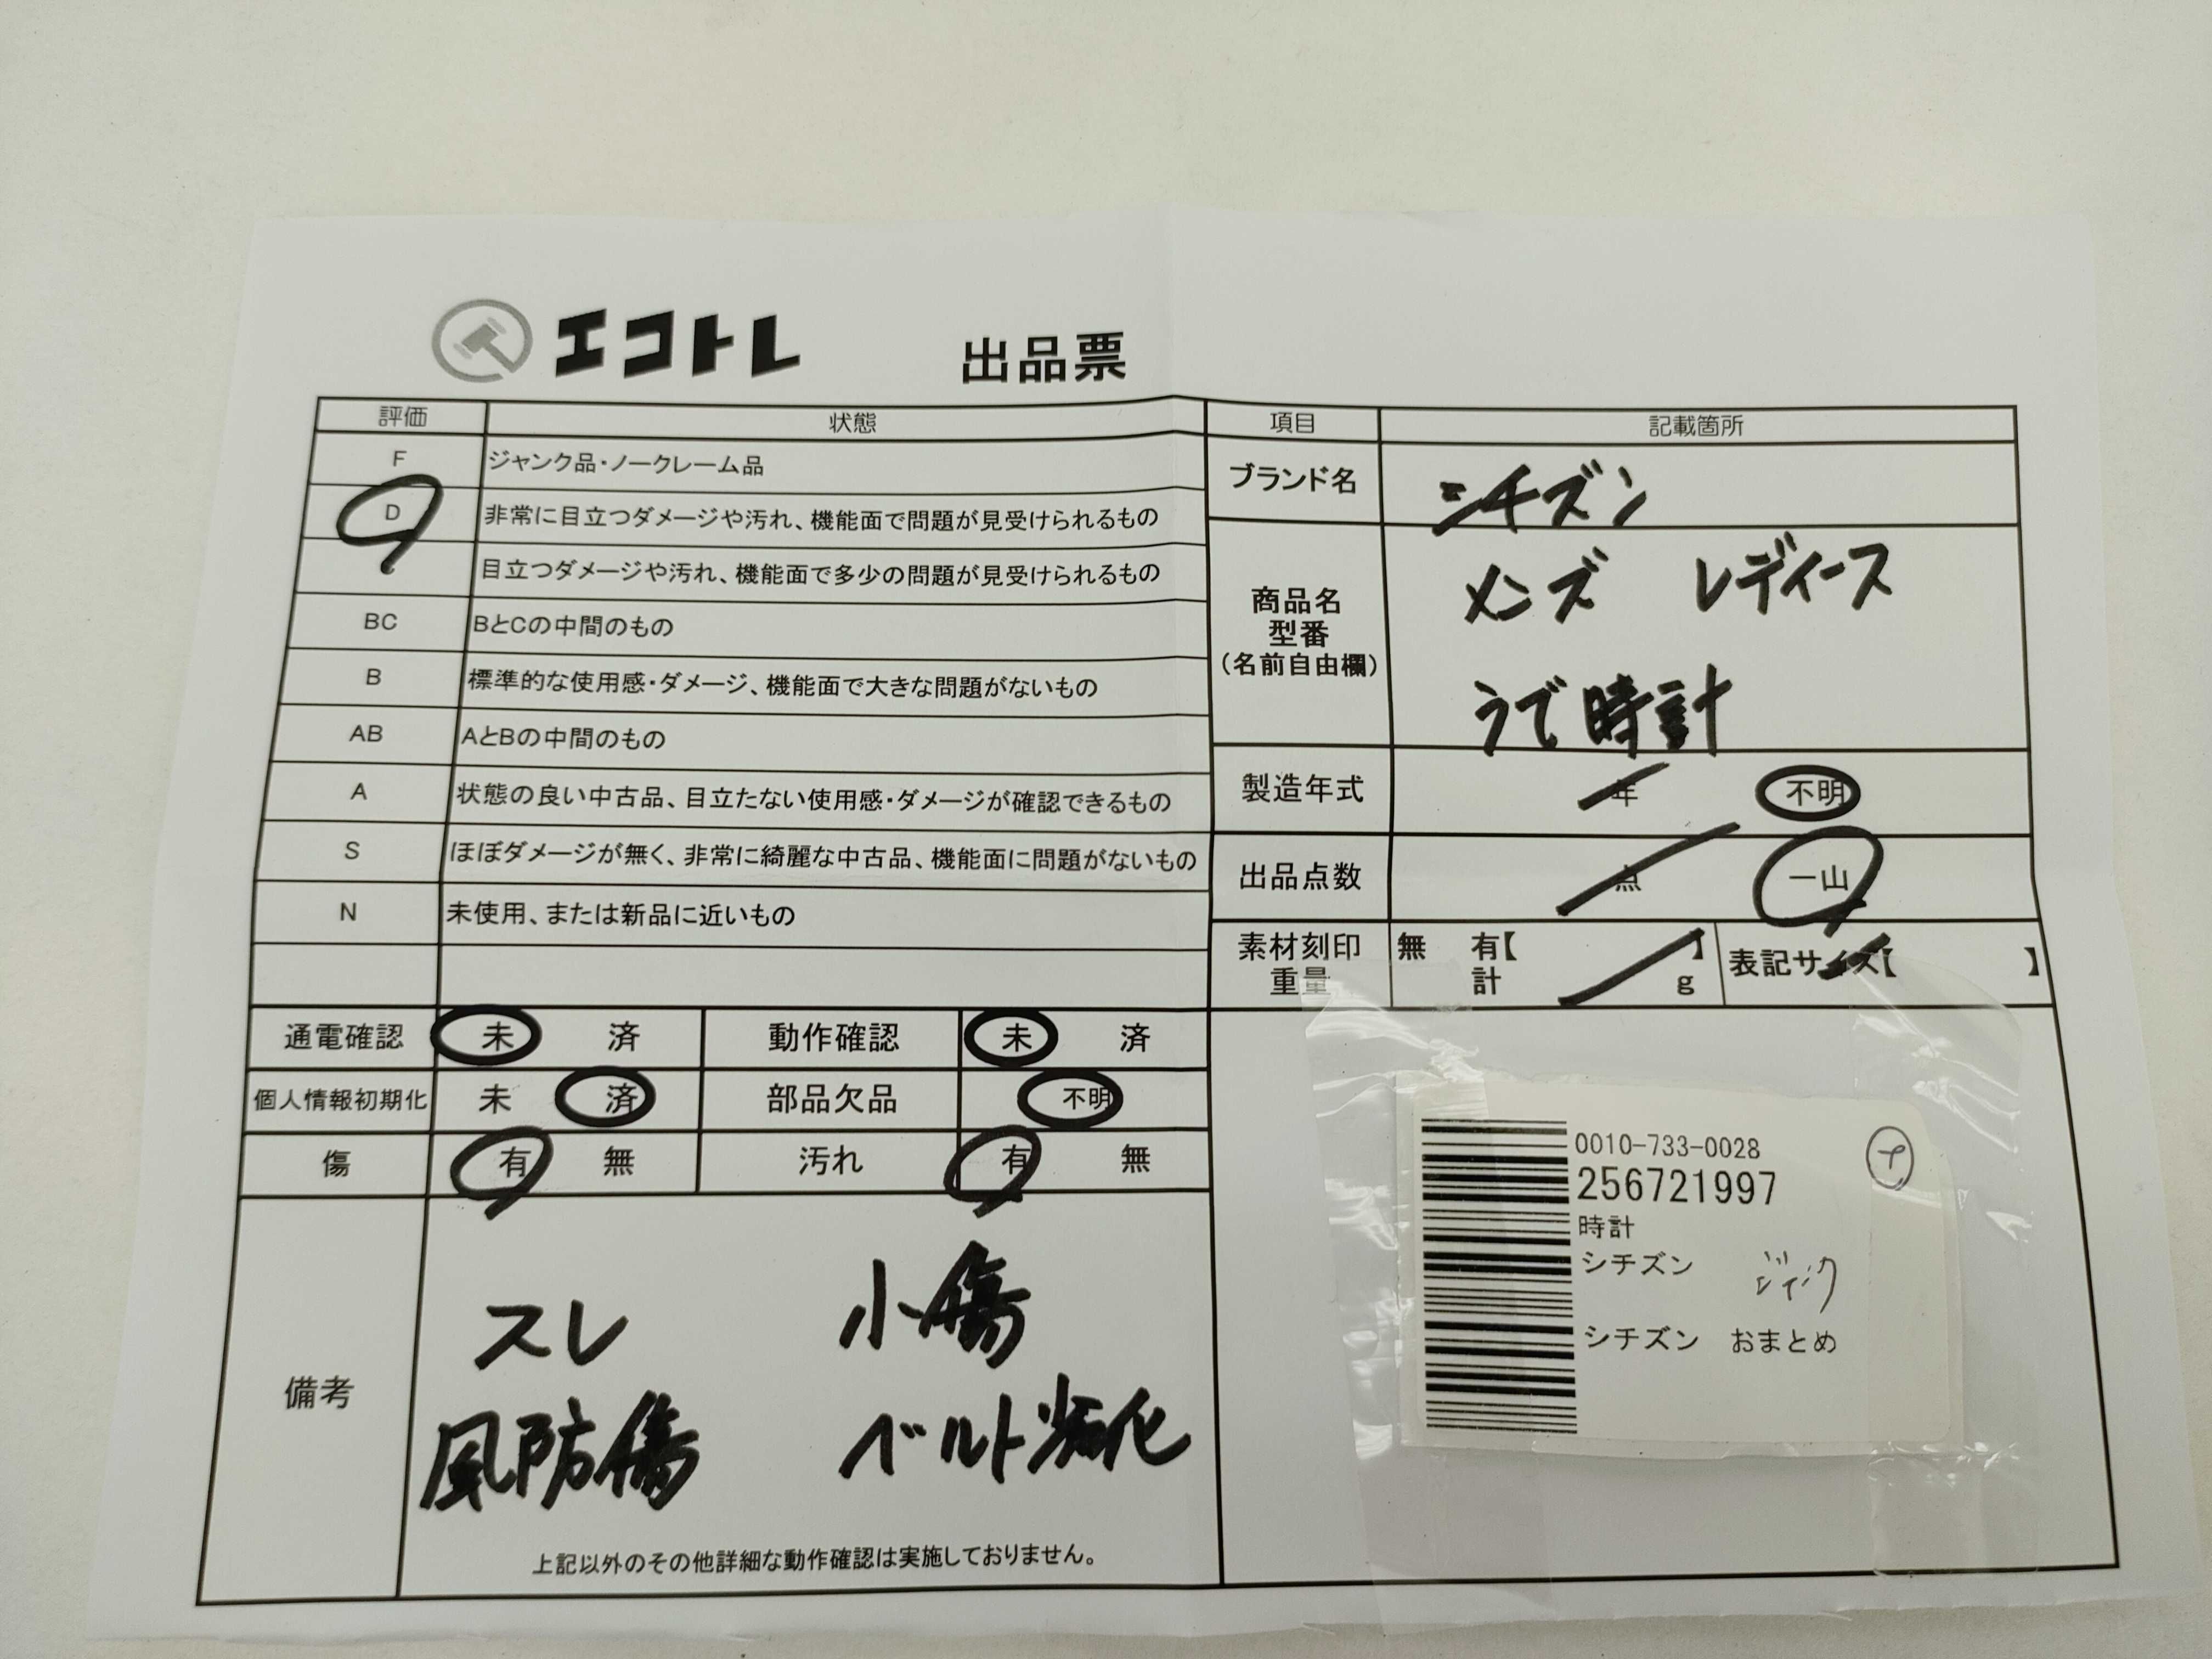 エコトレ 出品票
評価 状態
F ジャンク品・ノークレーム品
D 非常に目立つダメージや汚れ、機能面で問題が見受けられるもの
目立つダメージや汚れ、機能面で多少の問題が見受けられるもの
BC BとCの中間のもの
B 標準的な使用感・ダメージ、機能面で大きな問題がないもの
AB AとBの中間のもの
A 状態の良い中古品、目立たない使用感・ダメージが確認できるもの
S ほぼダメージが無く、非常に綺麗な中古品、機能面に問題がないもの
N 未使用、または新品に近いもの
項目 記載箇所
ブランド名 シチズン
商品名
型番
(名前自由欄)
メンズ レディース
うで時計
製造年式 年 不明
出品点数 点 一山
素材刻印 無 有【 】
重量 計 g
表記サイズ【 】
通電確認 未 済 動作確認 未 済
個人情報初期化 未 済 部品欠品 不明
傷 有 無 汚れ 有 無
備考
スレ 小傷
風防傷 ベルト劣化
上記以外のその他詳細な動作確認は実施しておりません。
0010-733-0028
256721997
時計
シチズン ジャンク
シチズン おまとめ